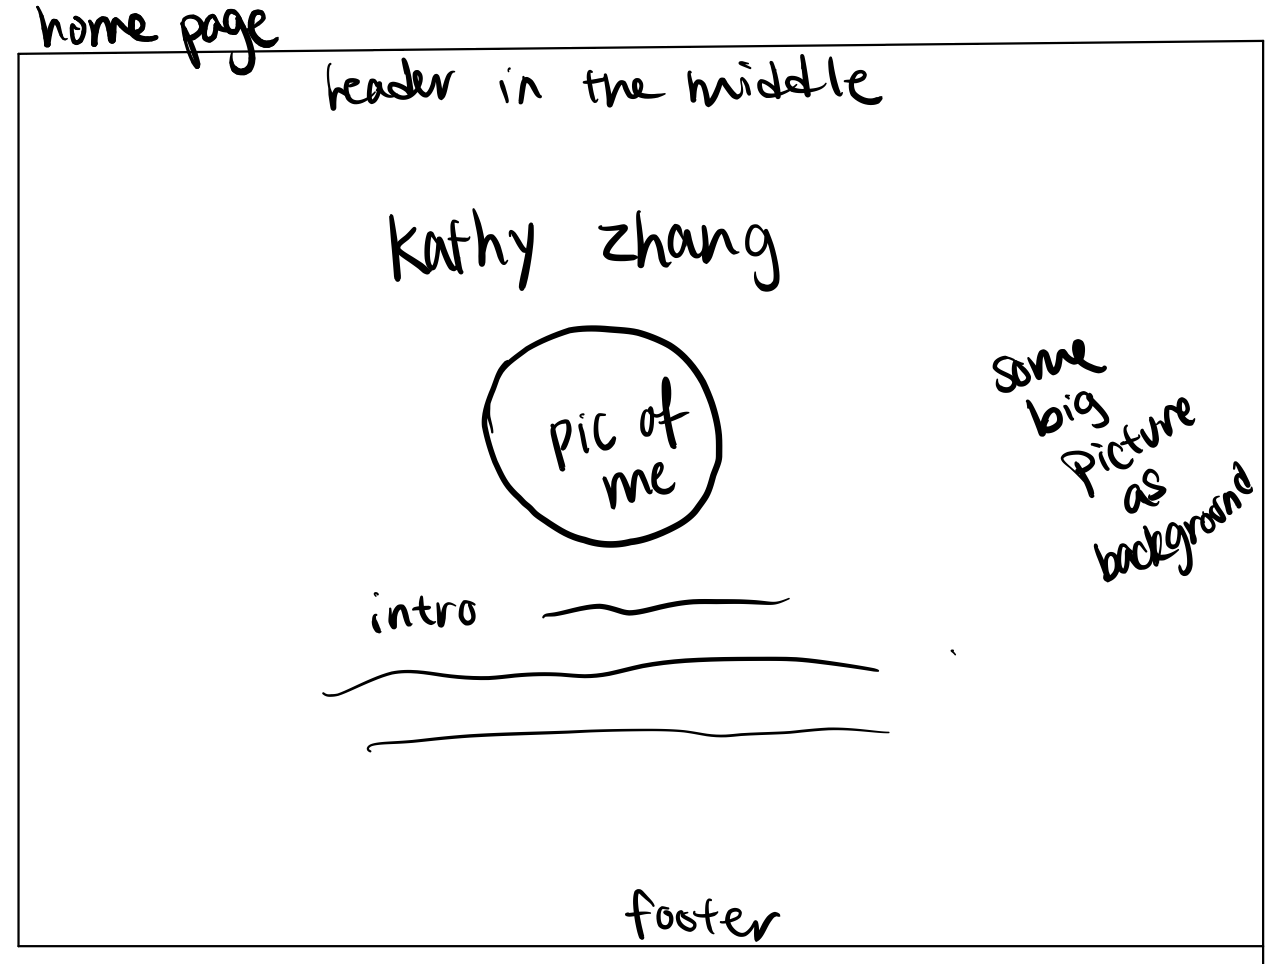 home page
header in the middle
Kathy Zhang
pic of
me
some
big
picture
as
background
intro
footer